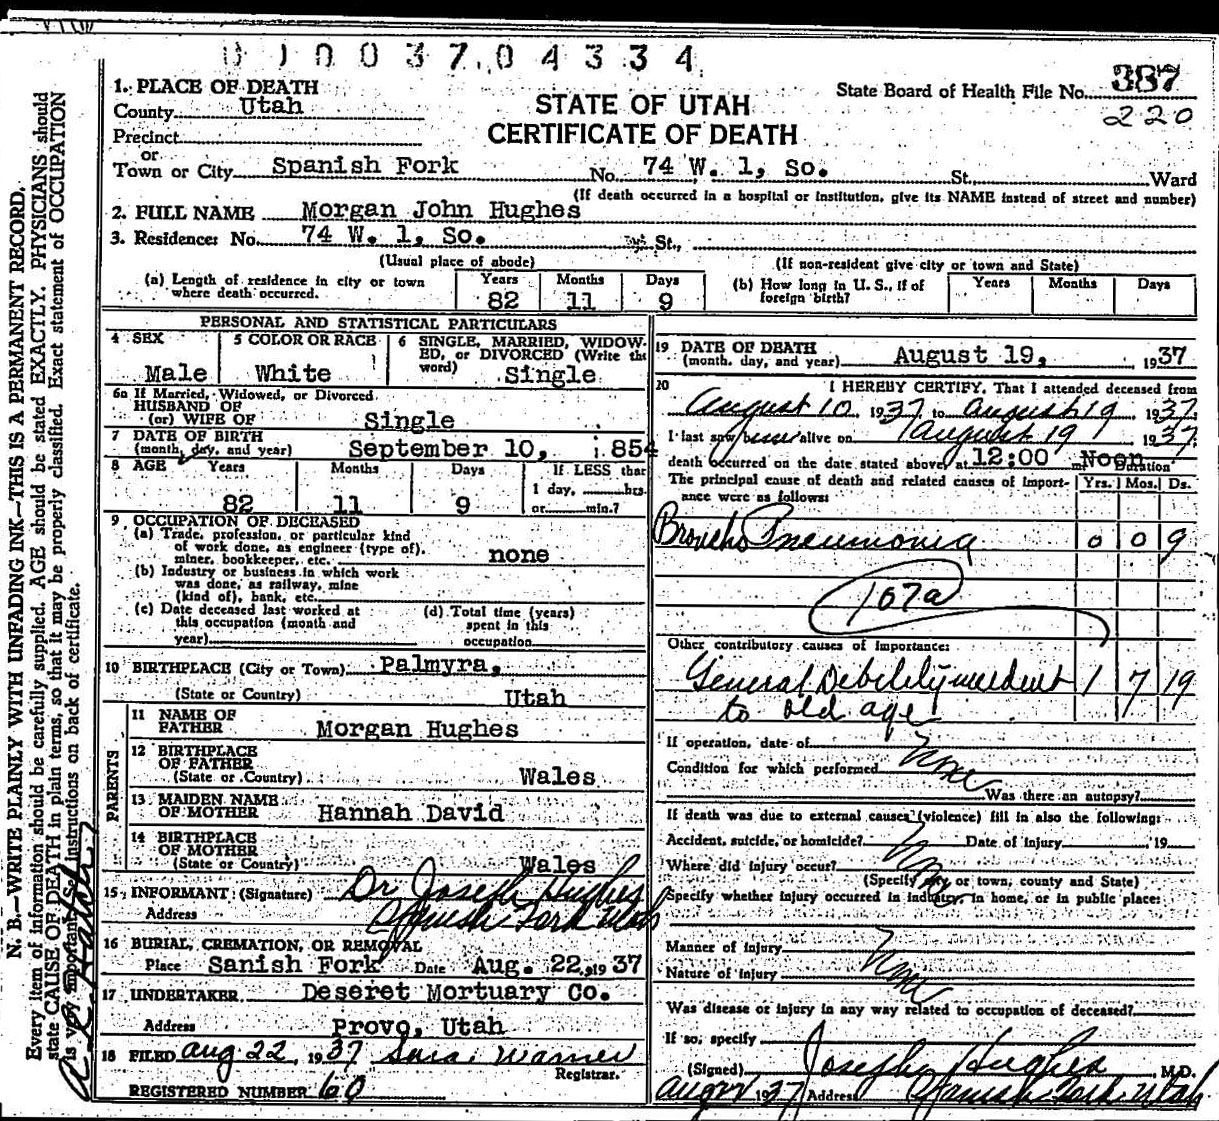 0100 37.04334
1. PLACE OF DEATH
County Utah
Precinct
or
Town or City Spanish Fork No. 74 W. 1, So. St. Ward
STATE OF UTAH
CERTIFICATE OF DEATH
State Board of Health File No. 387
220
(If death occurred in a hospital or institution, give its NAME instead of street and number)
2. FULL NAME Morgan John Hughes
3. Residence: No. 74 W. 1, So. St.,
(Usual place of abode) (If non-resident give city or town and State)
(a) Length of residence in city or town where death occurred. Years 82 Months 11 Days 9
(b) How long in U. S., if of foreign birth? Years Months Days
PERSONAL AND STATISTICAL PARTICULARS
4 SEX Male
5 COLOR OR RACE White
6 SINGLE, MARRIED, WIDOWED, or DIVORCED (Write the word) Single
6a If Married, Widowed, or Divorced
HUSBAND OF
(or) WIFE OF Single
7 DATE OF BIRTH
(month, day, and year) September 10, 1854
8 AGE Years Months Days If LESS than
82 11 9 1 day, hrs.
or min.?
9 OCCUPATION OF DECEASED
(a) Trade, profession, or particular kind
of work done, as engineer (type of),
miner, bookkeeper, etc. none
(b) Industry or business in which work
was done, as railway, mine
(kind of), bank, etc.
(c) Date deceased last worked at
this occupation (month and
year)
(d) Total time (years)
spent in this
occupation
10 BIRTHPLACE (City or Town) Palmyra,
(State or Country) Utah
PARENTS
11 NAME OF
FATHER Morgan Hughes
12 BIRTHPLACE
OF FATHER
(State or Country) Wales
13 MAIDEN NAME
OF MOTHER Hannah David
14 BIRTHPLACE
OF MOTHER
(State or Country) Wales
15 INFORMANT (Signature) Dr Joseph Hughes
Address Spanish Fork Utah
16 BURIAL, CREMATION, OR REMOVAL
Place Sanish Fork Date Aug. 22, 1937
17 UNDERTAKER Deseret Mortuary Co.
Address Provo, Utah
18 FILED Aug 22, 1937 Sara Warner
Registrar.
REGISTERED NUMBER 60
19 DATE OF DEATH
(month, day, and year) August 19, 1937
20 I HEREBY CERTIFY, That I attended deceased from
August 10 1937 to August 19 1937
I last saw alive on August 19 1937
death occurred on the date stated above, at 12:00 m. Noon
Duration
The principal cause of death and related causes of importance were as follows: Yrs. Mos. Ds.
Broncho Pneumonia 0 0 9
107a
Other contributory causes of importance:
General Debility incident 1 7 19
to old age
If operation, date of
Condition for which performed None
Was there an autopsy?
If death was due to external causes (violence) fill in also the following:
Accident, suicide, or homicide? Date of injury 19
Where did injury occur? None
(Specify city or town, county and State)
Specify whether injury occurred in industry, in home, or in public place:
Manner of injury None
Nature of injury
Was disease or injury in any way related to occupation of deceased?
If so, specify
(Signed) Joseph Hughes, M.D.
1937 Address Spanish Fork, Utah
N. B.—WRITE PLAINLY WITH UNFADING INK—THIS IS A PERMANENT RECORD.
Every item of information should be carefully supplied. AGE should be stated EXACTLY. PHYSICIANS should
state CAUSE OF DEATH in plain terms, so that it may be properly classified. Exact statement of OCCUPATION
is very important. See instructions on back of certificate.